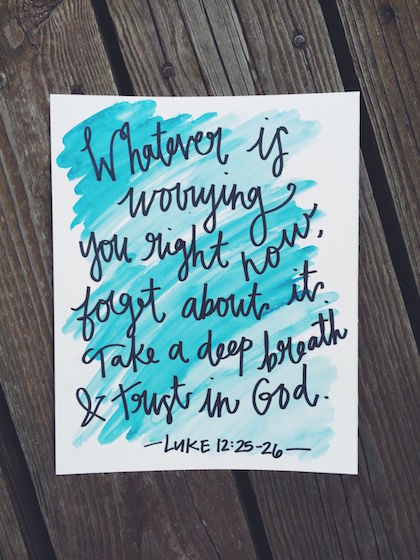 Whatever is
worrying
you right now,
forget about it.
Take a deep breath
& trust in God.
—LUKE 12:25-26—